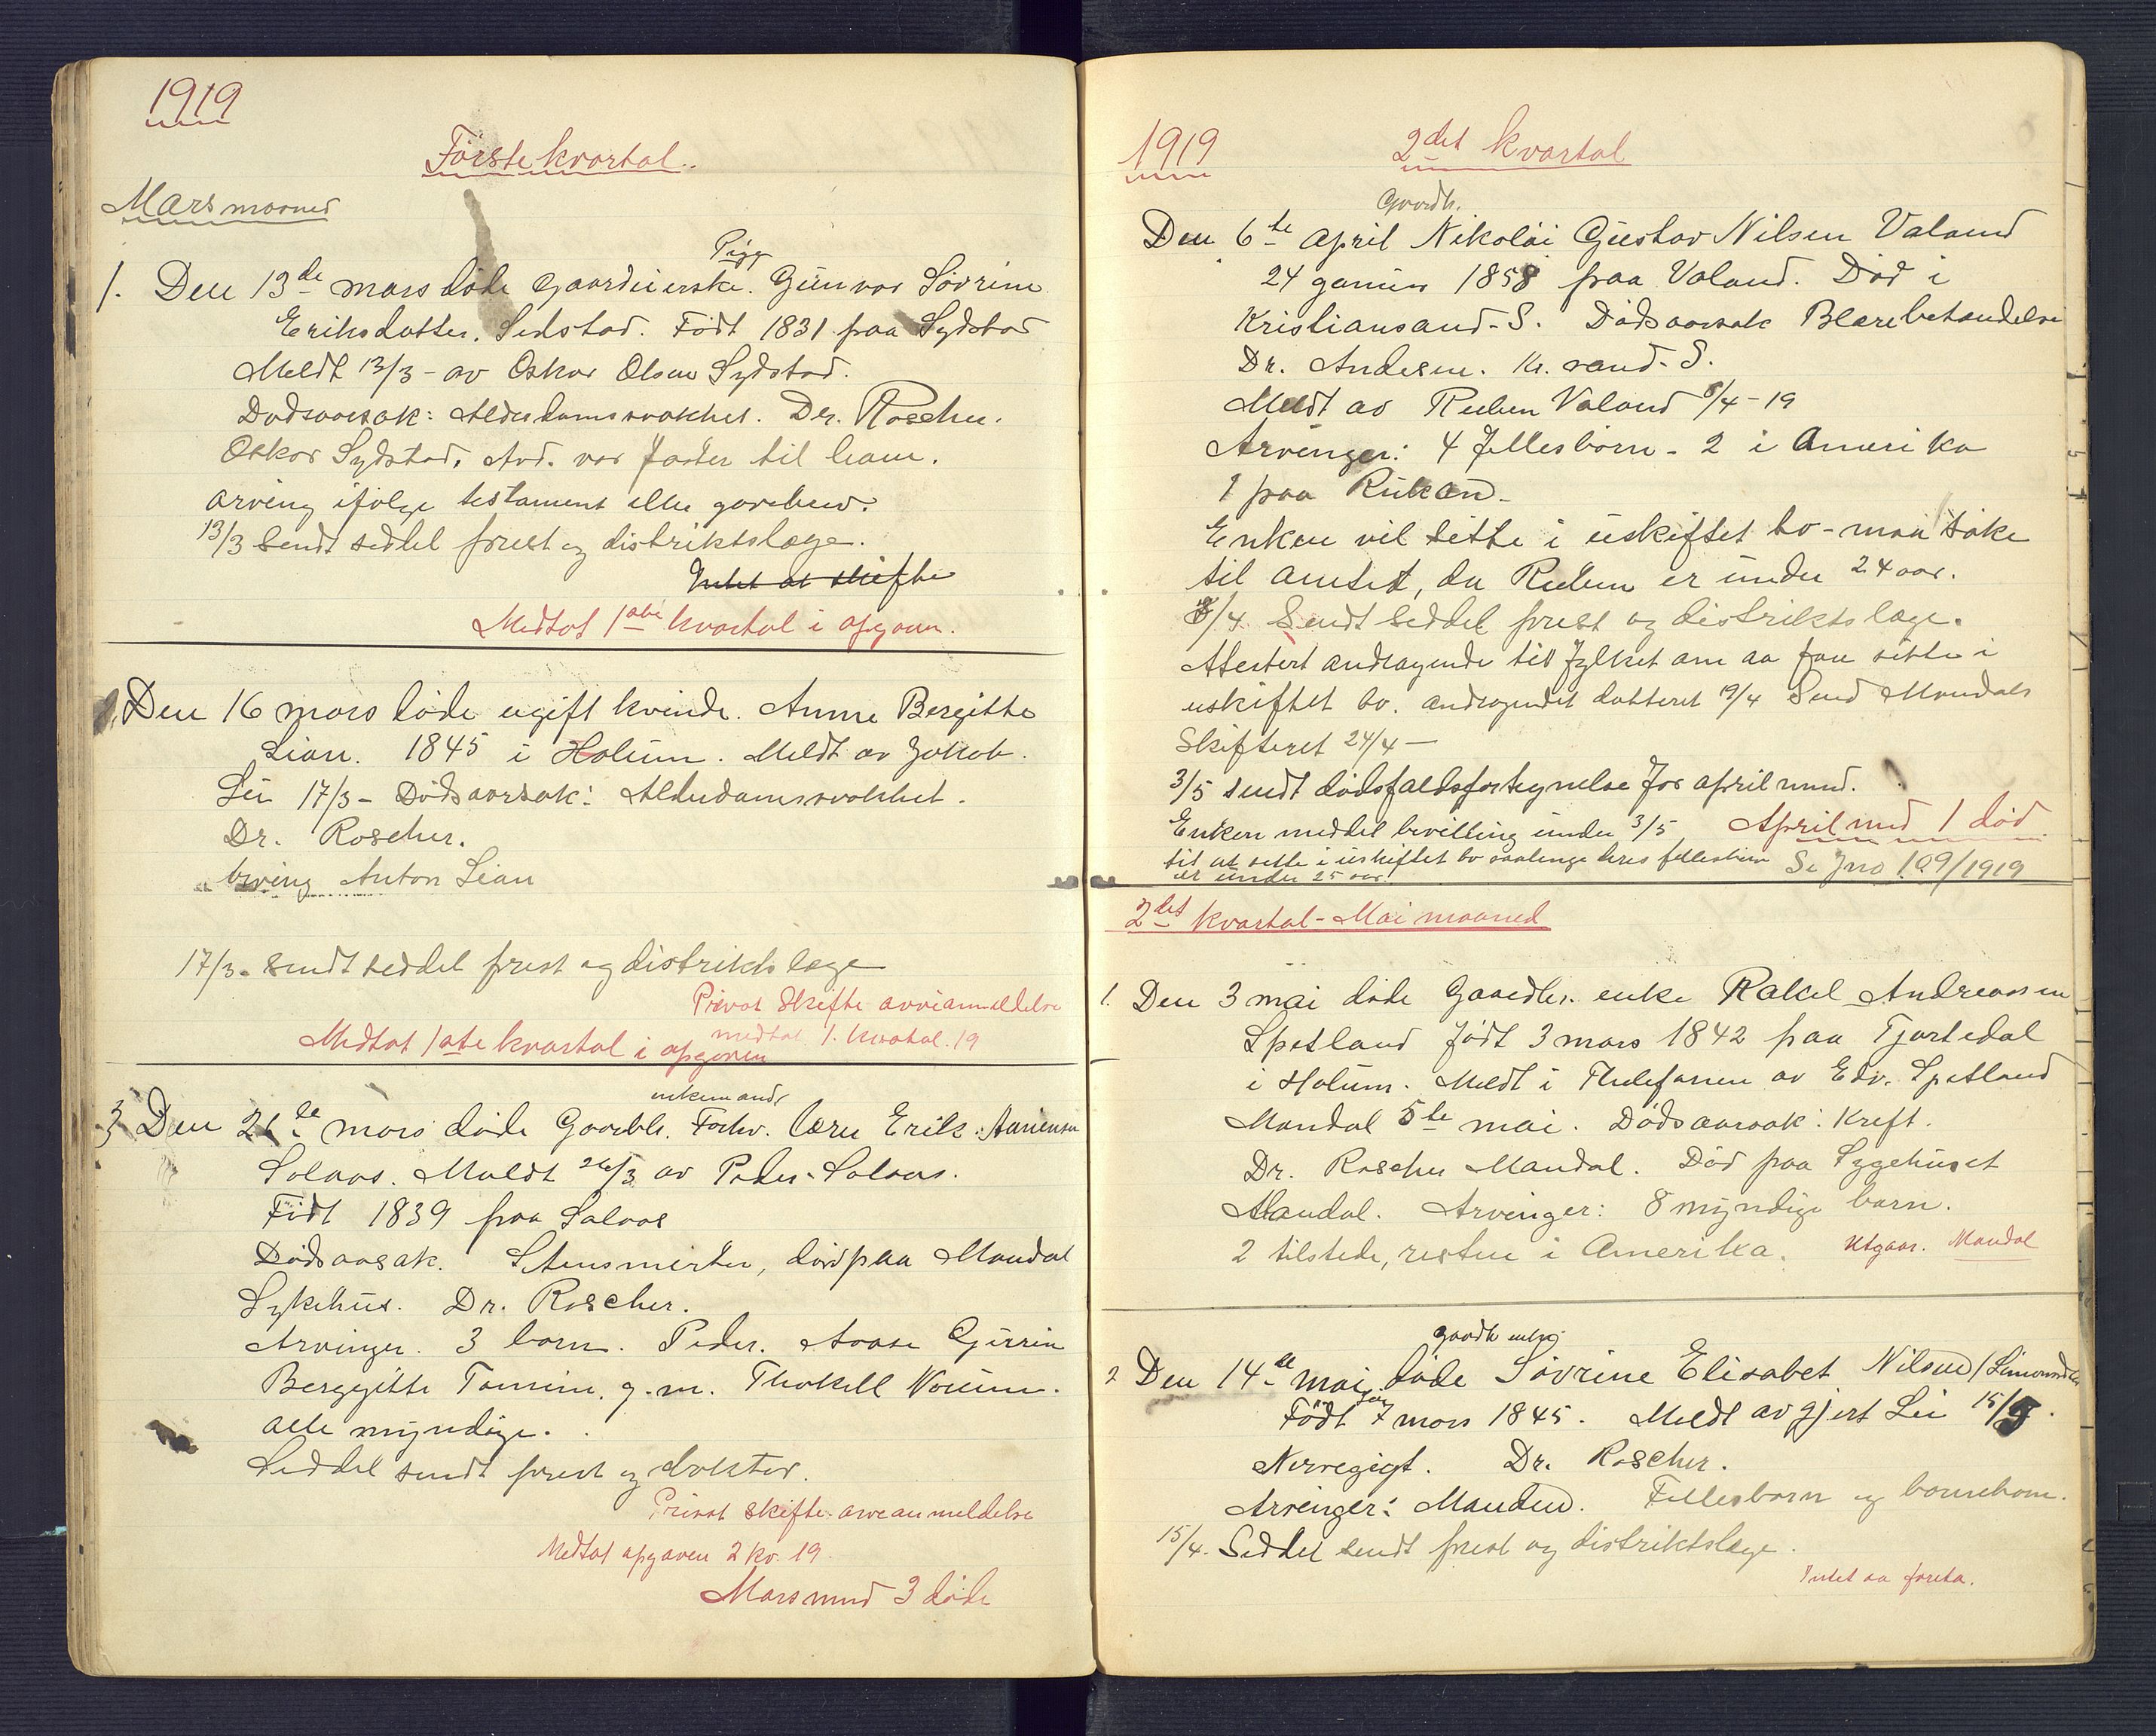 1919
Første kvartal.
Mars maaned
Pige
1. Den 13de mars døde Gaardeierske. Gunvor Sørine
Eriksdatter. Sedstad. Født 1831 paa Sydstad
Meldt 13/3 - av Oskar Olsen Sydstad.
Dødsaarsak: Alderdomssvakhet. Dr. Roscher.
Oskar Sydstad. Avd. var faster til ham.
arving ifølge testament eller gavebrev.
13/3 Sendt seddel prest og distriktslæge.
Intet at skifte
Medtat 1ste kvartal i opgaven.
Den 16 mars døde ugift kvinde. Anne Bergitte
Lian. 1845 i Holum. Meldt av Jakob
Lei 17/3 - Dødsaarsak: Alderdomssvakhet.
Dr. Roscher.
Arving Anton Lian
17/3. Sendt seddel prest og distrikts læge
Privat skifte arveanmeldelse
medtat 1. kvartal. 19
Medtat 1ste kvartal i opgaven
enkemand
3 Den 26de mars døde Gaardbr. Forhv. lærer Erik Aanensen
Solaas. Meldt 26/3 av Peder Solaas.
Født 1839 paa Solaas
Dødsaarsak. Stensmerter, død paa Mandal
Sykehus. Dr. Roscher.
Arvinger. 3 barn. Peder. Aase Gurine
Berggitte Tomine. g.m. Thorkell Noume.
alle myndige.
Seddel sendt prest og doktor.
Privat skifte. arveanmeldelse
Medtat opgaven 2 kv. 19.
Mars mnd 3 døde
1919
2det kvartal
Gaardbr.
Den 6te April Nikolai Gustav Nilsen Valand
24 januar 1858 paa Valand. Død i
Kristiansand - S. Dødsaarsak Blærebetændelse
Dr. Andersen. Kr.sand - S.
Meldt av Reuben Valand 8/4 - 19
Arvinger: 4 Fellesbørn - 2 i Amerika
1 paa Rukan.
Enken vil sitte i uskiftet bo - maa søke
til Amtet, da Reuben er under 24 aar.
8/4 Sendt seddel prest og distrikts læge.
Attestert andragende til fylket om aa faa sitte i
uskiftet bo. andragendet datteret 19/4 Send Mandals
Skifteret 24/4 -
3/5 sendt dødsfaldsfortegnelse for april mnd.
Enken meddel bevilling under 3/5 April mnd 1 død
til at sitte i uskiftet bo saalenge deres fellesbørn Se Jno 109/1919
er under 25 aar.
2det kvartal - Mai maaned
1. Den 3 mai døde Gaardbr. enke Rakel Andreassen
Spetland født 3 mars 1842 paa Tjortedal
i Holum. Meldt i Thelefonen av Edv. Spetland
Mandal 5te mai. Dødsaarsak: Kreft.
Dr. Roscher Mandal. Død paa Sygehuset
Mandal. Arvinger: 8 myndige barn.
2 tilstede, resten i Amerika. Utgaar. Mandal
gaardbr enke
2 Den 14de mai døde Søvrine Elisabet Nilsen
Født 7 mars 1845. Meldt av Gjert Lei 15/5.
Nervegigt. Dr. Roscher.
Arvinger: Manden. Fellesbarn og barnebarn.
15/4. Seddel sendt prest og distriktslæge.
Intet aa foreta.